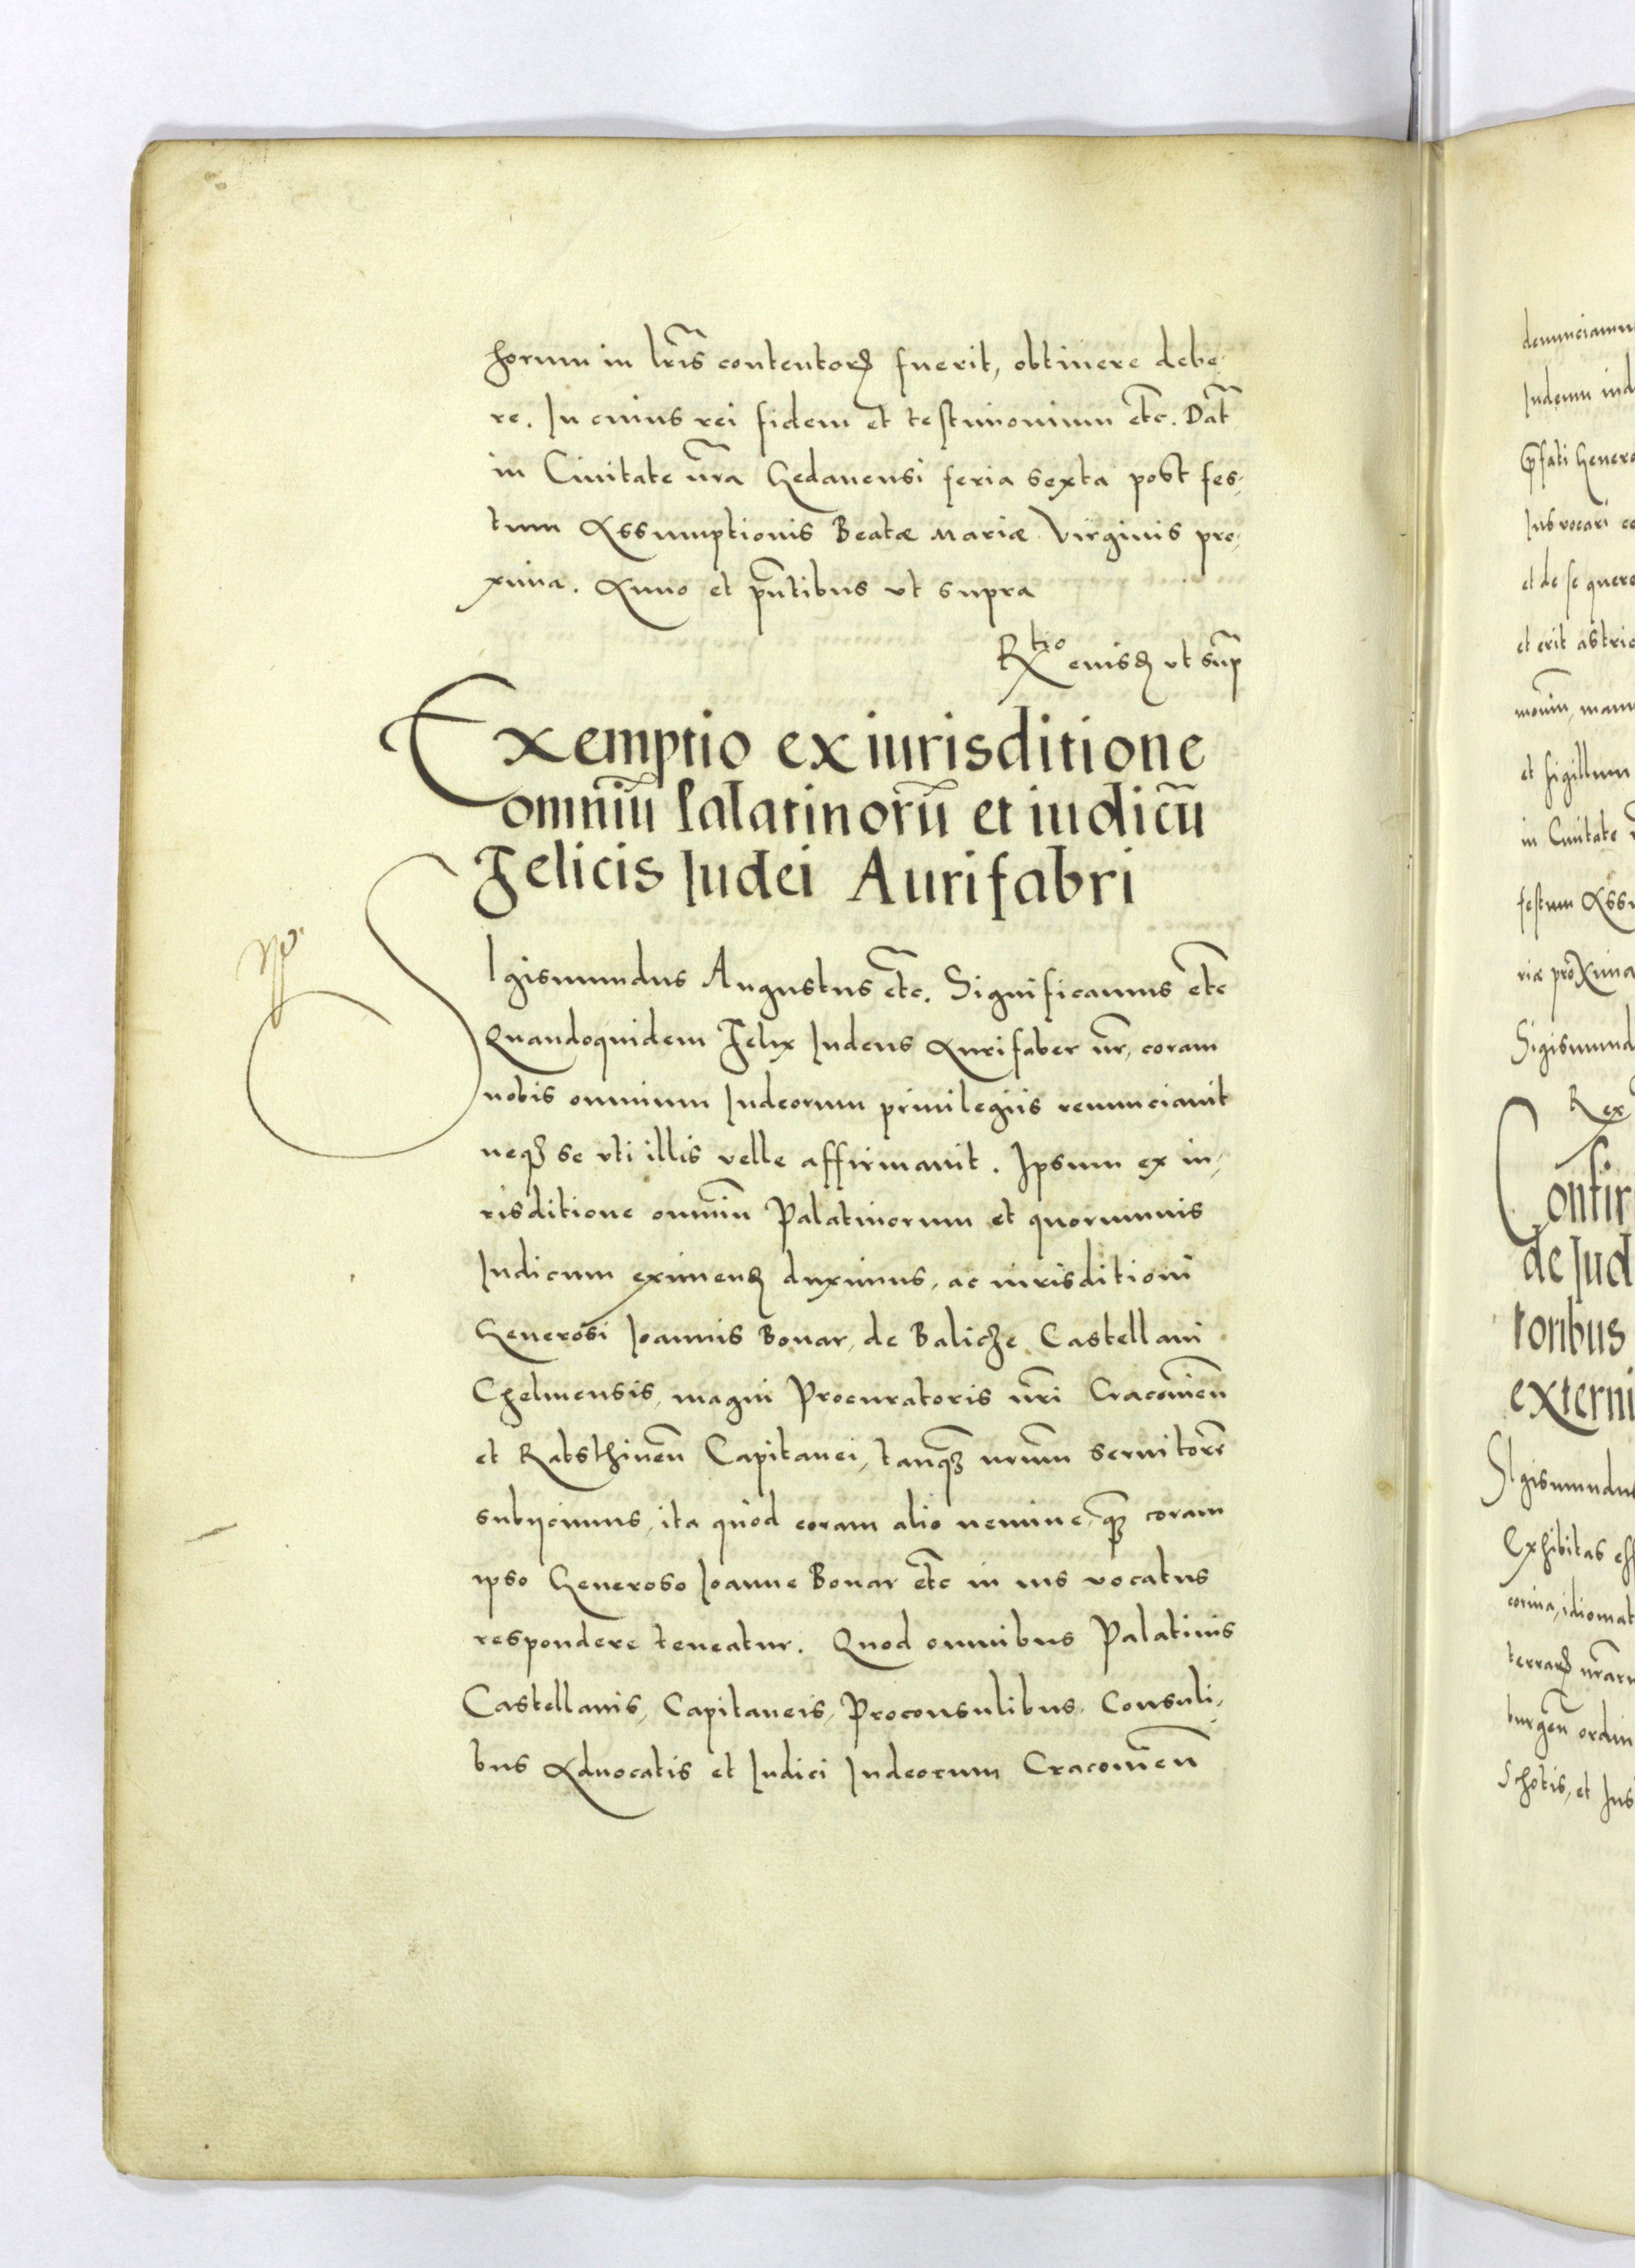 horum in lr̃is contentorꝝ fuerit, obtinere debe-
re. In cuius rei fidem et testimonium etc̃. Dat̃
in Ciuitate nr̃a Gedanensi feria sexta post fes-
tum Assumptionis Beatæ Mariæ Virginis pro-
xima. Anno et pñtibus vt supra
Rtio eiusꝝ vt sup̃
Exemptio ex iurisditione
omniũ Palatinorũ et iudicũ
Felicis Iudei Aurifabri
SIgismundus Augustus etc̃. Significamus etc̃
Quandoquidem Felix Iudeus Aurifaber nr̃, coram
nobis omnium Iudeorum priuilegiis renunciauit
neqꝫ se vti illis velle affirmauit. Ipsum ex iu-
risditione omniũ Palatinorum et quorumuis
Iudicum eximenꝝ duximus, ac iurisditioni
Generosi Ioannis Bonar, de Balicze Castellani
Chelmensis, magni Procuratoris nr̃i Cracouieñ
et Rabsthineñ Capitanei, tanqꝫ nr̃um seruitorẽ
subijcimus, ita quod coram alio nemine, qꝫ coram
ipso Generoso Ioanne Bonar etc̃ in ius vocatus
respondere teneatur. Quod omnibus Palatinis
Castellanis, Capitaneis, Proconsulibus, Consuli-
bus Aduocatis et Iudici Iudeorum Cracouieñ
denunciamu
p̃fati Genero
Ius vocari co
et de se quere
et erit astric
moniũ, manu
et sigillum
in Ciuitate
festum Assu
riæ proxima
Sigismund
Rex
Confir
de Iud
toribus
externi
SIgismundus
Exhibitas
terrarꝝ nr̃aru
burgeñ ordin
Schotis, et Ins